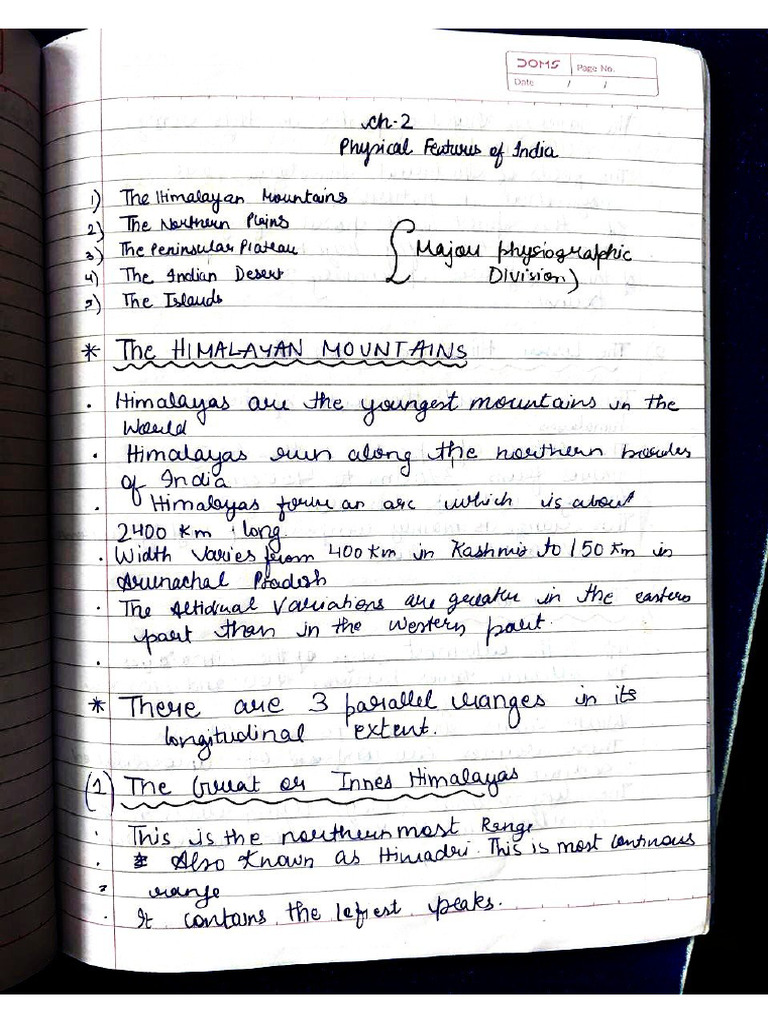 DOMS
Page No.
Date / /
ch-2
Physical Features of India
1) The Himalayan Mountains
2) The Northern Plains
3) The Peninsular Plateau
4) The Indian Desert
5) The Islands
{ Major physiographic
Division)
* The HIMALAYAN MOUNTAINS
. Himalayas are the youngest mountains in the
World
. Himalayas run along the northern border
of India
. Himalayas form an arc which is about
2400 Km long.
. Width varies from 400 Km in Kashmir to 150 Km in
Arunachal Pradesh
. The Altidunal Variations are greater in the eastern
part than in the western part.
.
* There are 3 parallel ranges in its
longitudinal extent.
(1) The Great or Innes Himalayas
. This is the northernmost Range
. Also Known as Himadri. This is most continous
range
. It contains the lofiest peaks.